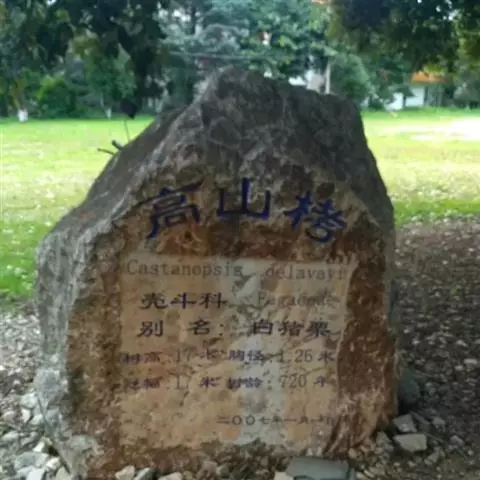 高山栲
Castanopsis delavayi
壳斗科 Fagaceae
别 名：白猪栗
树高：17米 胸径：1.26米
冠幅：17米 树龄：720年
二〇〇七年一月